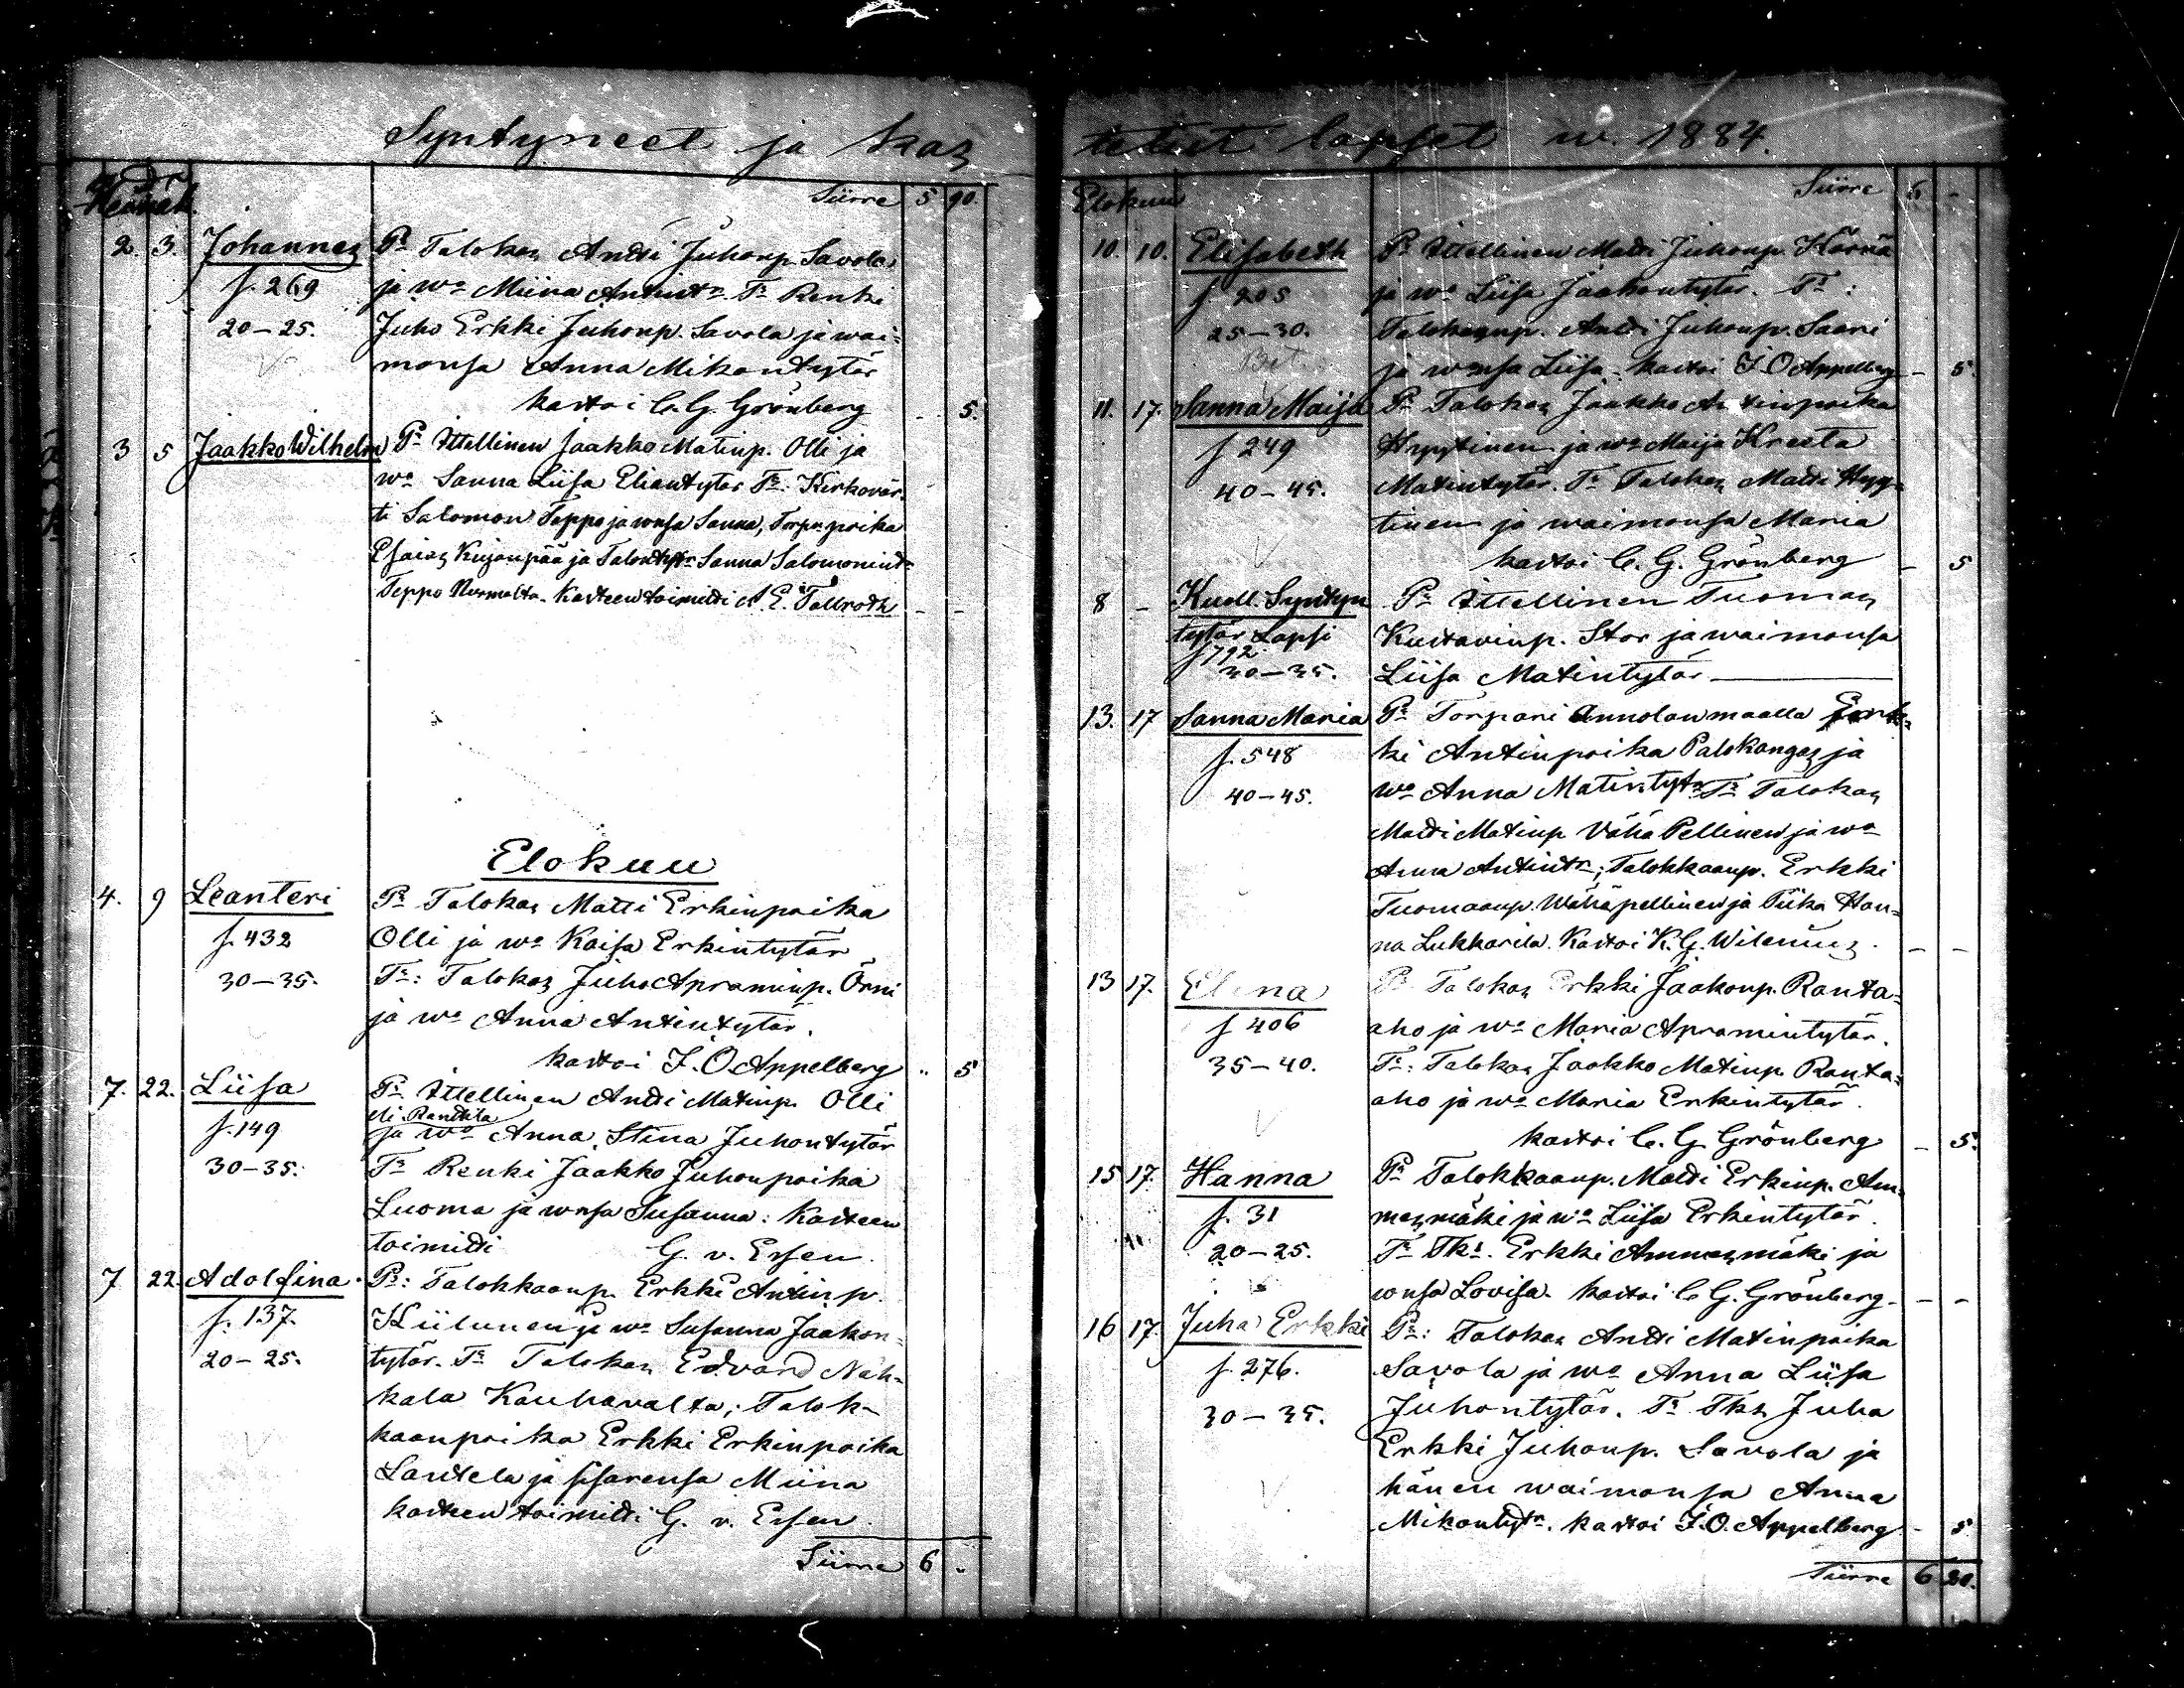 Syntyneet ja kas
Siirre 5 90.
2. 3. Johannes Pr Talokas Antti Juhonp. Savola
f. 269 ja wo Miina Antintr. Tr Renki
20-25. Juho Erkki Juhonp. Savola ja wai-
monsa Anna Mikontytär
kastoi C. G. Grönberg - 5.
3 5 Jaakko Wilhelm Pr Ittellinen Jaakko Matinp. Olli ja
wo Sanna Liisa Eliantytär Tr. Kirkovär-
ti Salomon Teppo ja wnsa Sanna, Torpanpoika
Esaias Kujanpää ja Talontytr Sanna Salomonint-
Teppo Nurmolta. Kasteen toimitti A. E. Tallroth - -
Elokuu
4. 9 Leanteri Pr Talokas Matti Erkinpoika
f. 432 Olli ja wo Kaisa Erkintytär
30-35. Tr: Talokas Juho Apraminp. Örni
ja wo Anna Antintytär.
kastoi J. O. Appelberg " 5
7. 22. Liisa Pr Ittellinen Antti Matinp. Olli
eli Rantila
f. 149 ja wo Anna Stina Juhontytär
30-35. Tr Renki Jaakko Juhonpoika
Luoma ja wnsa Susanna: Kasteen
toimitti G. v. Essen.
7 22. Adolfina. Pr: Talokkaanp. Erkki Antinp.
f. 137. Kiilunen ja wo Susanna Jaakon-
20-25. tytär. Tr Talokas Edvard Nah-
kala Kauhavalta; Talok-
kaanpoika Erkki Erkinpoika
Lantela ja sisarensa Miina
kasteen toimitti G. v. Essen.
Siirre 6 -
tetut lapset w. 1884.
Elokuu Siirre 6 -
10. 10. Elisabeth Pr Ittellinen Matti Juhonp. Kärnä
f 205 ja wo Liisa Jaakontytär. Tr:
25-30. Talokaanp. Antti Juhonp. Saari
ja wnsa Liisa. kastoi J. O Appelberg - 5.
11. 17. Sanna Maija Pr Talokas Jaakko Antinpoika
f 249 Hyytinen ja wo Maija Kresta
40-45. Matintytär. Tr Talokas Matti Hyy-
tinen ja waimonsa Maria
kastoi C. G. Grönberg - 5
8 - Kuoll. Syntyn Pr Ittellinen Tuomas
tytär Lapsi Kustavinp. Stor ja waimonsa
f 792
30-35. Liisa Matintytär
13. 17 Sanna Maria Pr Torpari Annolan maalla Erk-
f. 548 ki Antinpoika Palokangas ja
40-45. wo Anna Matintytr Tr Talokas
Matti Matinp Vähä Pellinen ja wo
Anna Antintr; Talokkaanp. Erkki
Tuomaanp. Wähäpellinen ja Piika Han-
na Lukkarila. Kastoi K. G. Wilenius. - -
13 17. Elina Pr Talokas Erkki Jaakonp. Ranta-
f 406 aho ja wo Maria Apramintytär.
35-40. Tr: Talokas Jaakko Matinp Ranta-
aho ja wo Maria Erkintytär.
kastoi C. G. Grönberg - 5.
15 17. Hanna Pr Talokkaanp. Matti Erkinp. Am-
f. 31 mesmäki ja wo Liisa Erkintytär.
20-25. Tr Tks. Erkki Ammesmäki ja
wnsa Lovisa. kastoi C G. Grönberg. - -
16 17. Juha Erkki Pr: Talokas Antti Matinpoika
f. 276. Savola ja wo Anna Liisa
30-35. Juhontytär. Tr Tks Juha
Erkki Juhonp. Savola ja
hänen waimonsa Anna
Mikontytr. kastoi J. O. Appelberg - 5
Siirre 6 20.